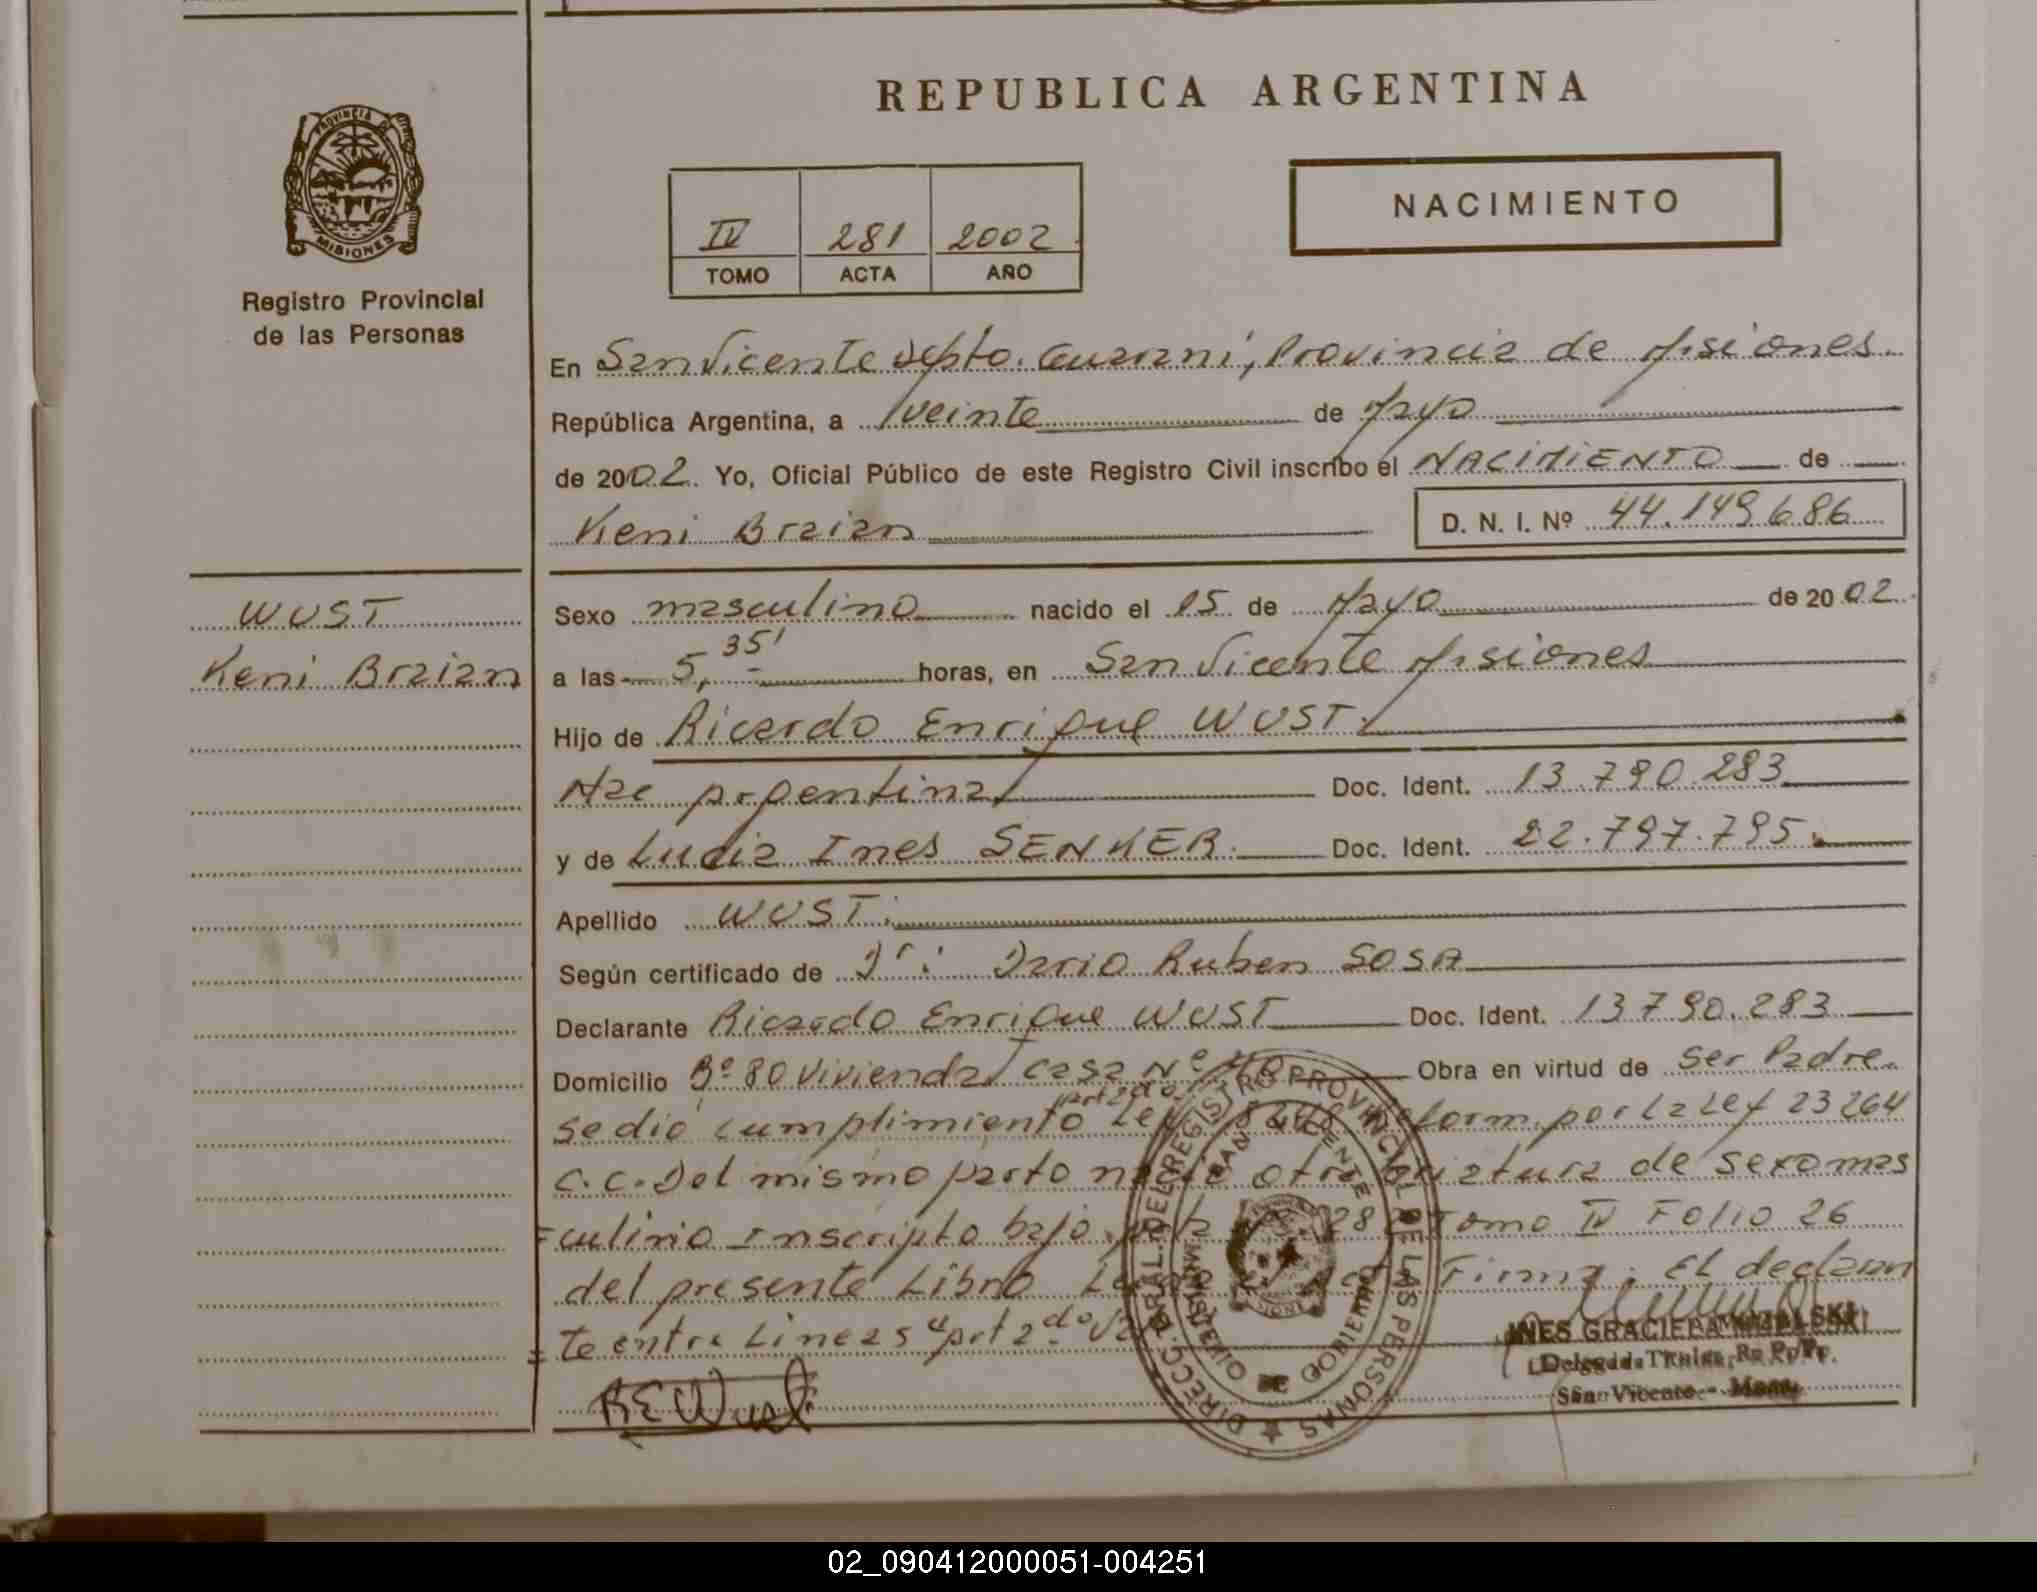 REPUBLICA ARGENTINA
PROVINCIA DE
MISIONES
Registro Provincial
de las Personas
IV 281 2002
TOMO ACTA AÑO
NACIMIENTO
En San Vicente Depto. Guarani, Provincia de Misiones.
República Argentina, a veinte de Mayo
de 2002. Yo, Oficial Público de este Registro Civil inscribo el NACIMIENTO de
Keni Braian D. N. I. Nº 44.149.686
WUST
Keni Braian
Sexo masculino nacido el 15 de Mayo de 2002.
a las 5,35' horas, en San Vicente Misiones
Hijo de Ricardo Enrique WUST.
Nac Argentina Doc. Ident. 13.790.283
y de Lucia Ines SENKER. Doc. Ident. 22.797.795.
Apellido WUST.
Según certificado de Dr: Dario Ruben SOSA
Declarante Ricardo Enrique WUST Doc. Ident. 13.790.283
Domicilio Bº 80 Vivienda Casa Nº Obra en virtud de Ser Padre.
art 2do
se dió cumplimiento Ley Reform. por la Ley 23264
C.C. Del mismo parto nació otra criatura de sexo mas
=culino Inscripto bajo Acta 282 Tomo IV Folio 26
del presente Libro Firma: El declaran
=te entre Lineas "art 2do
REWust
INES GRACIELA
Delegada Titular R. P. P.
San Vicente - Mnes.
DIRECC. GRAL. DEL REGISTRO PROVINCIAL DE LAS PERSONAS
SAN VICENTE
MINISTERIO DE GOBIERNO
02_090412000051-004251